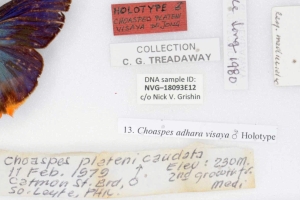 HOLOTYPE ♂
CHOASPES PLATENI
VISAYA
COLLECTION
C. G. TREADAWAY
DNA sample ID:
NVG-18093E12
c/o Nick V. Grishin
1980
13. Choaspes adhara visaya ♂ Holotype
Choaspes plateni caudata
11 Feb. 1979 ↑ Elev: 230m.
Catmon St. Brd, ♂ 2nd growth fr.
So. Leyte, PHIL. Medi